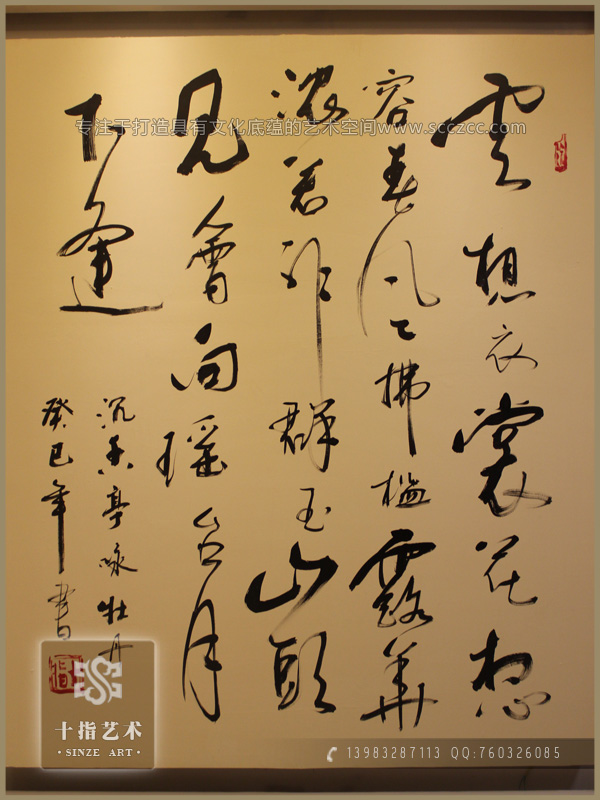 雲想衣裳花想
容春风拂槛露華
濃若非群玉山頭
見會向瑶台月
下逢
沉香亭咏牡丹
癸巳年書
专注于打造具有文化底蕴的艺术空间www.scczcc.com
十指艺术
·SINZE ART·
13983287113 QQ:760326085